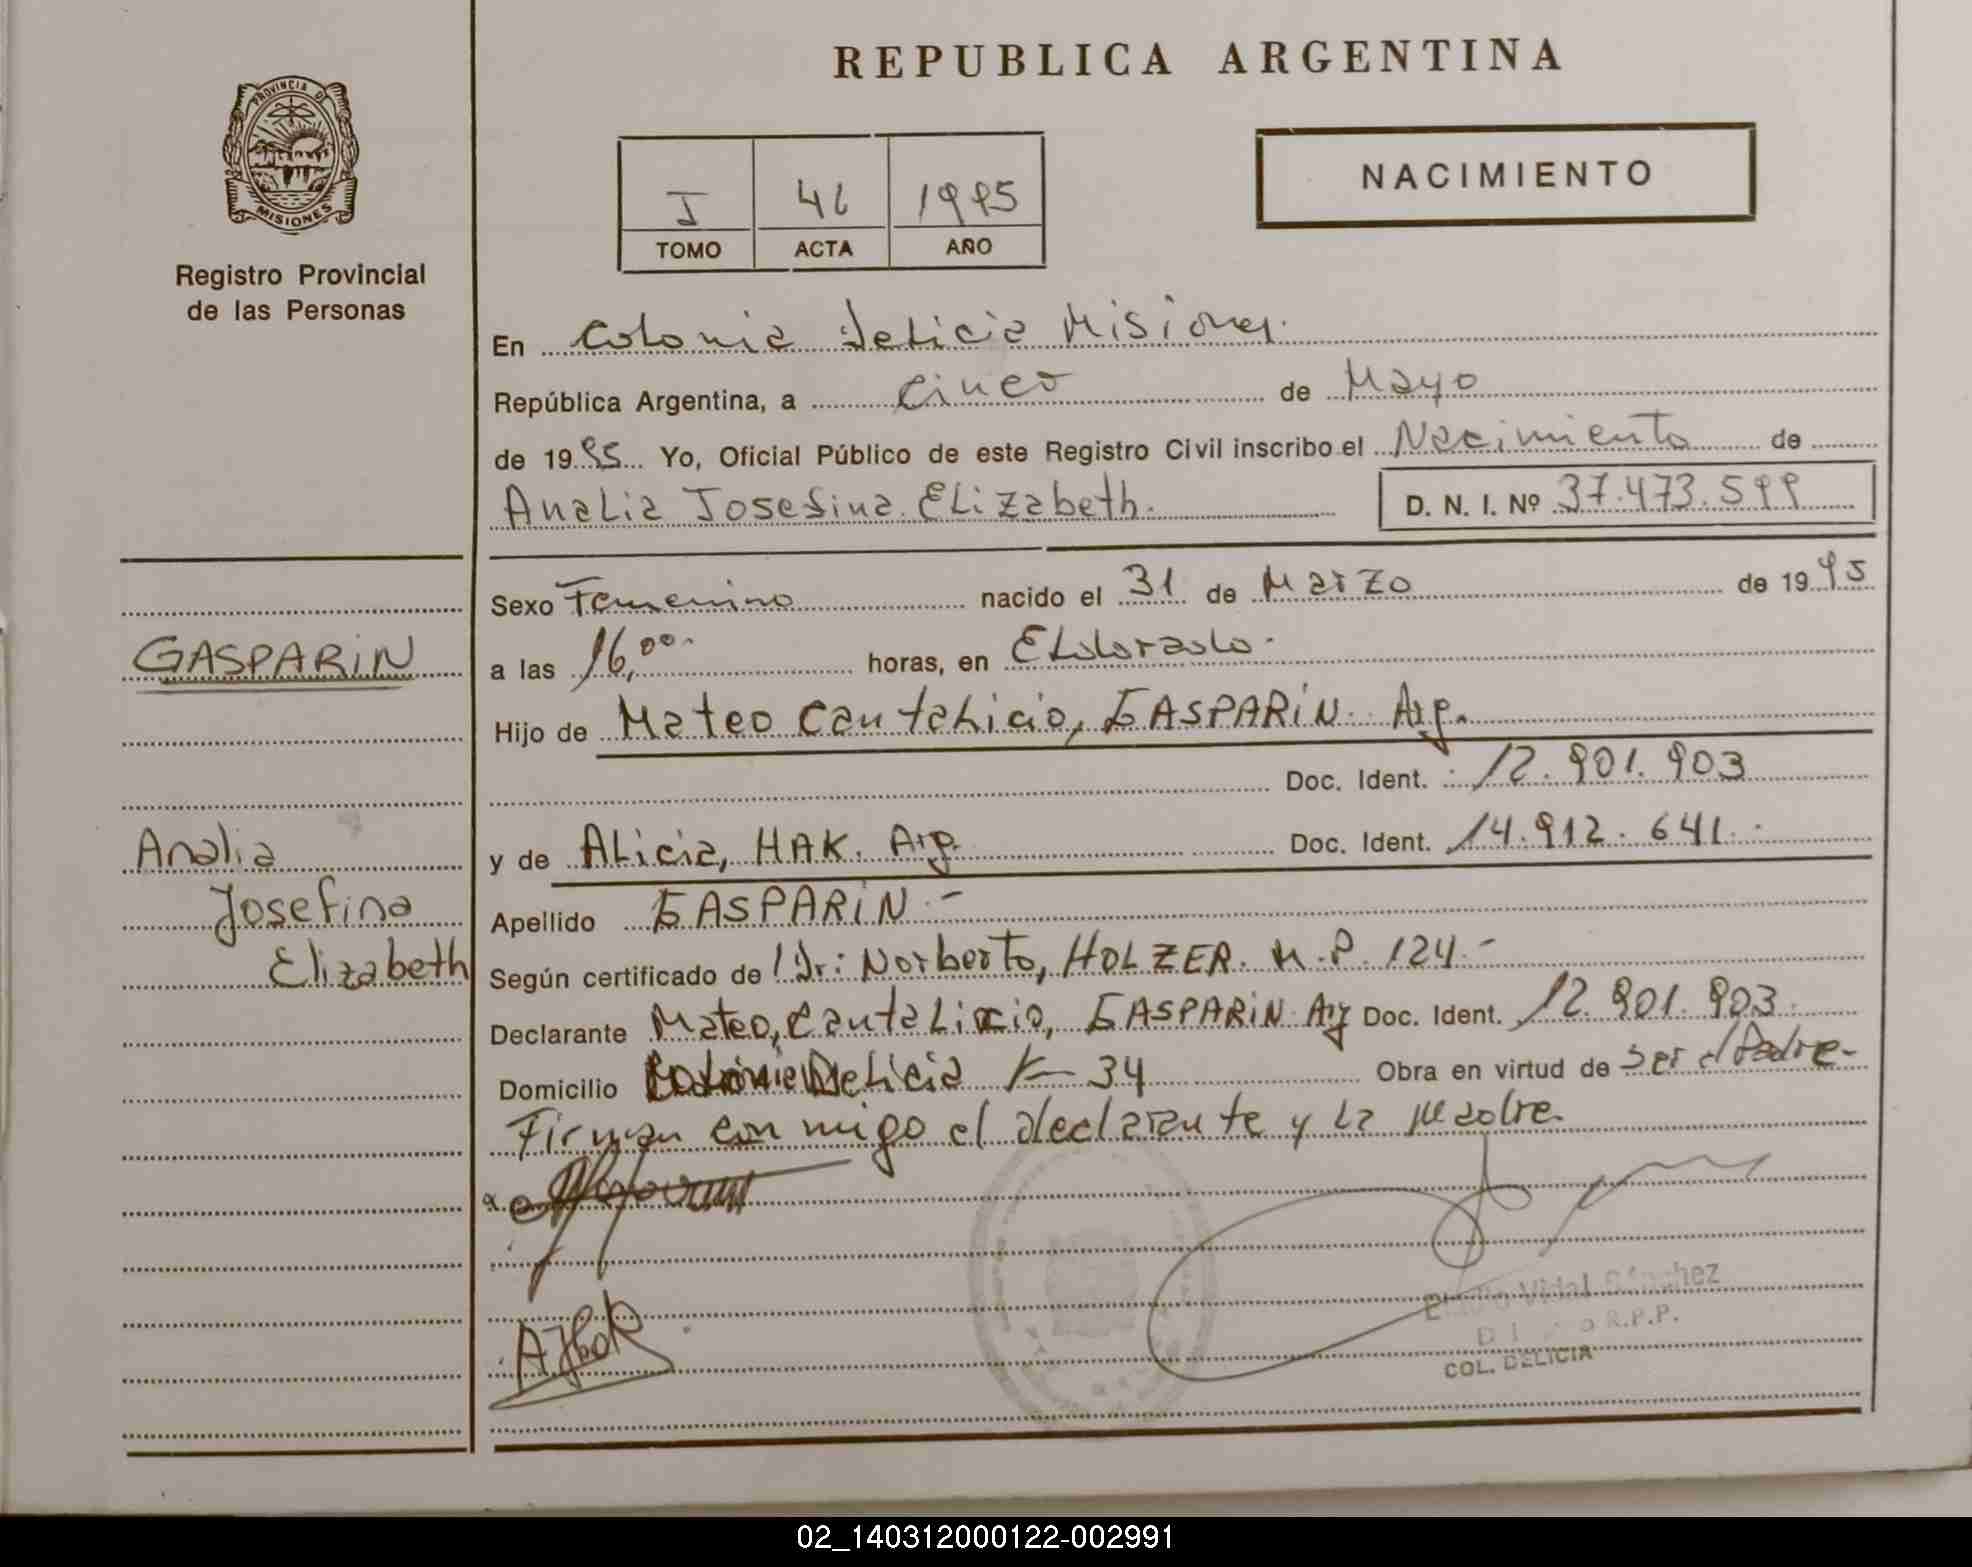 REPUBLICA ARGENTINA
PROVINCIA DE
MISIONES
Registro Provincial
de las Personas
I 1995
TOMO ACTA AÑO
NACIMIENTO
En Colonia Delicia Misiones.
República Argentina, a Cinco de Mayo
de 1995 Yo, Oficial Público de este Registro Civil inscribo el Nacimiento de
Analia Josefina Elizabeth. D. N. I. Nº 37.473.599
Sexo Femenino nacido el 31 de Marzo de 1995
GASPARIN
a las 16,00 horas, en Eldorado.
Hijo de Mateo Cantalicio, GASPARIN. Arg.
Doc. Ident. : 12.901.903
Analia
y de Alicia, HAK. Arg. Doc. Ident. 14.912.641.
Josefina
Apellido GASPARIN -
Elizabeth
Según certificado de Dr: Norberto, HOLZER. M.P. 124.-
Declarante Mateo, Cantalicio, GASPARIN Arg Doc. Ident. 12.901.903.
Domicilio Colonia Delicia K- 34 Obra en virtud de ser el Padre-
Firman con migo el declarante y La Madre.
AHak
Vidal Sánchez
R.P.P.
COL. DELICIA
02_140312000122-002991